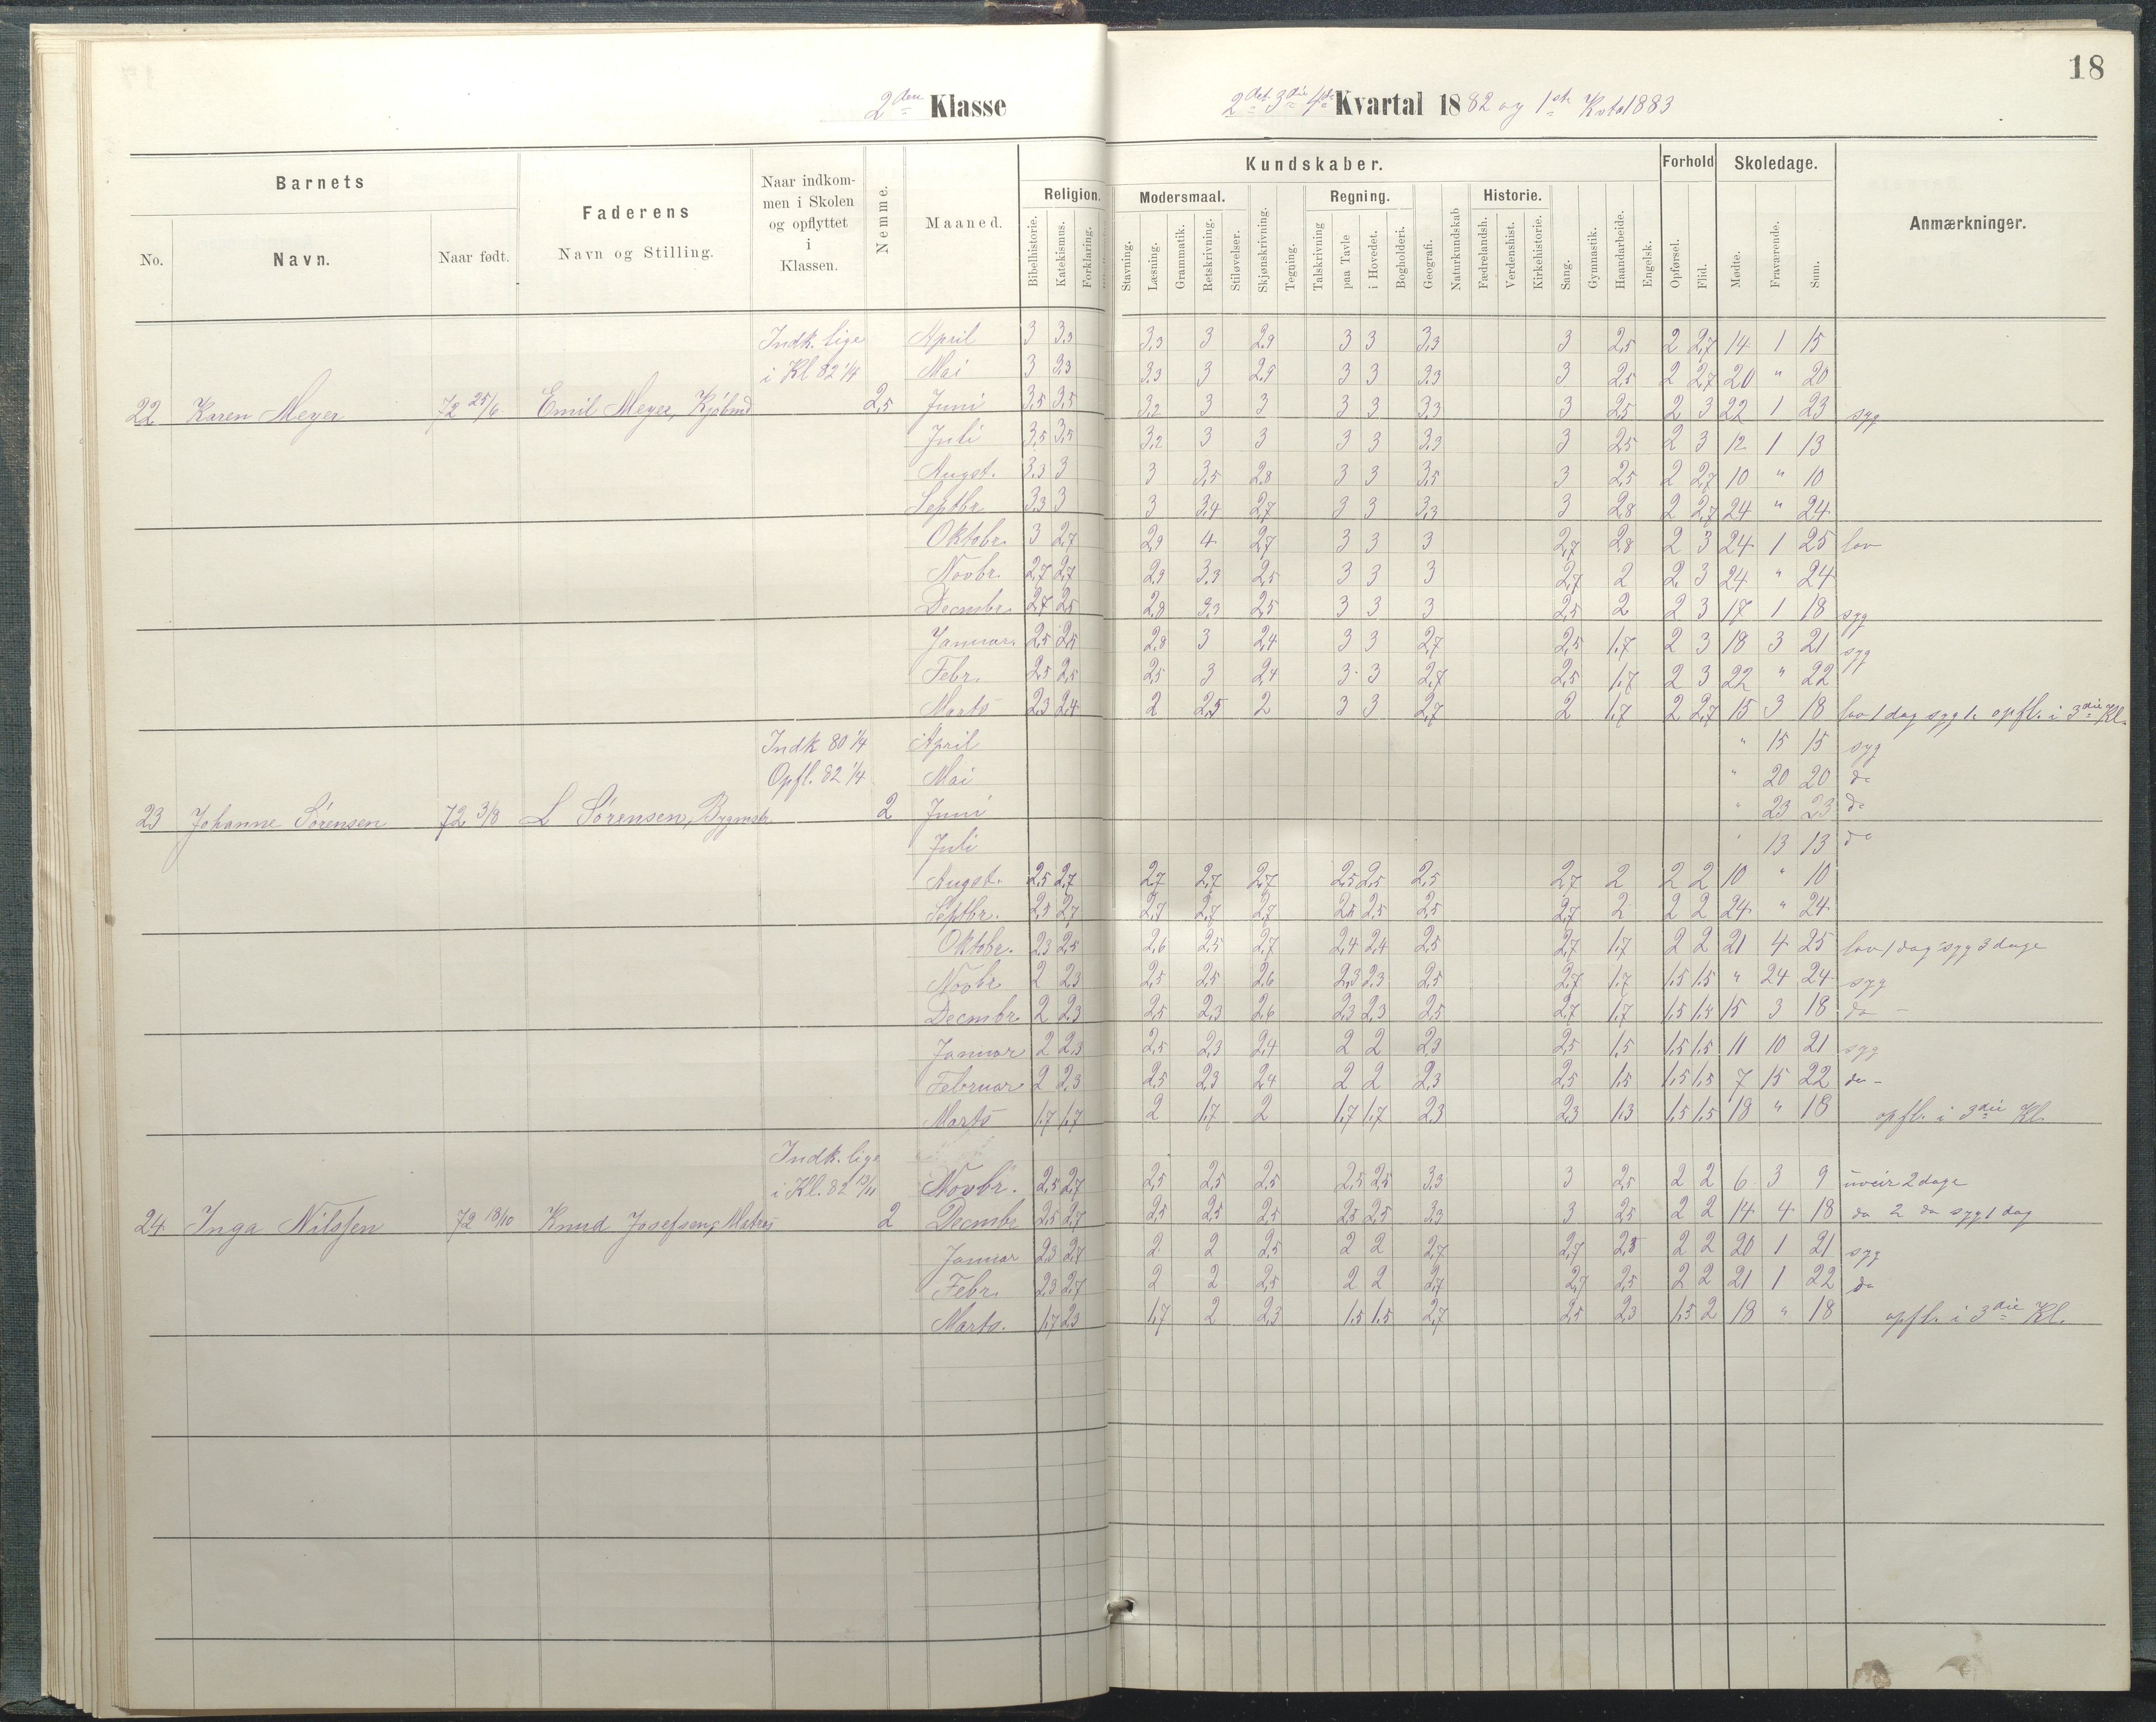 18
2den Klasse
2det 3die 4de Kvartal 1882 og 1ste Kvtal 1883
Barnets
No.
Navn.
Naar født.
Faderens
Navn og Stilling.
Naar indkom-
men i Skolen
og opflyttet
i
Klassen.
Nemme.
Maaned.
Kundskaber.
Religion.
Bibelhistorie.
Katekismus.
Forklaring.
Modersmaal.
Stavning.
Læsning.
Grammatik.
Retskrivning.
Stiløvelser.
Skjønskrivning.
Tegning.
Regning.
Talskrivning
paa Tavle
i Hovedet.
Bogholderi.
Geografi.
Naturkundskab
Historie.
Fædrelandsh.
Verdenshist.
Kirkehistorie.
Sang.
Gymnastik.
Haandarbeide.
Engelsk.
Forhold
Opførsel.
Flid.
Skoledage.
Mødte.
Fraværende.
Sum.
Anmærkninger.
Indk. lige April 3 3,3 3,3 3 2,9 3 3 3,3 3 2,5 2 2,7 14 1 15
i Kl 82 1/4 Mai 3 3,3 3,3 3 2,9 3 3 3,3 3 2,5 2 2,7 20 " 20
22 Karen Meyer 72 25/6 Emil Meyer, Kjøbmd 2,5 Juni 3,5 3,5 3,2 3 3 3 3 3,3 3 2,5 2 3 22 1 23 syg
Juli 3,5 3,5 3,2 3 3 3 3 3,3 3 2,5 2 3 12 1 13
Augst. 3,3 3 3 3,5 2,8 3 3 3,5 3 2,5 2 2,7 10 " 10
Septbr 3,3 3 3 3,4 2,7 3 3 3,3 3 2,8 2 2,7 24 " 24
Oktobr. 3 2,7 2,9 4 2,7 3 3 3 2,7 2,8 2 3 24 1 25 lov
Novbr. 2,7 2,7 2,9 3,3 2,5 3 3 3 2,7 2 2 3 24 " 24
Decmbr. 2,7 2,5 2,8 3,3 2,5 3 3 3 2,5 2 2 3 17 1 18 syg
Januar. 2,5 2,5 2,8 3 2,4 3 3 2,7 2,5 1,7 2 3 18 3 21 syg
Febr. 2,5 2,5 2,5 3 2,4 3 3 2,7 2,5 1,7 2 3 22 " 22
Marts 2,3 2,4 2 2,5 2 3 3 2,7 2 1,7 2 2,7 15 3 18 lov 1 dag syg 1. opfl. i 3die Kl.
Indk 80 1/4 April " 15 15 syg
Opfl. 82 1/4 Mai " 20 20 do
23 Johanne Sørensen 72 3/8 L Sørensen, Bygmstr 2 Juni " 23 23 do
Juli " 13 13 do
Augst. 2,5 2,7 2,7 2,7 2,7 2,5 2,5 2,5 2,7 2 2 2 10 " 10
Septbr. 2,5 2,7 2,7 2,7 2,7 2,5 2,5 2,5 2,7 2 2 2 24 " 24
Oktobr. 2,3 2,5 2,6 2,5 2,7 2,4 2,4 2,5 2,7 1,7 2 2 21 4 25 lov 1 dag syg 3 dage
Novbr 2 2,3 2,5 2,5 2,6 2,3 2,3 2,5 2,7 1,7 1,5 1,5 " 24 24 syg
Decmbr. 2 2,3 2,5 2,3 2,6 2,3 2,3 2,5 2,7 1,7 1,5 1,5 15 3 18 do -
Januar 2 2,3 2,5 2,3 2,4 2 2 2,3 2,5 1,5 1,5 1,5 11 10 21 syg
Februar 2 2,3 2,5 2,3 2,4 2 2 2,3 2,5 1,5 1,5 1,5 7 15 22 do -
Marts 1,7 1,7 2 1,7 2 1,7 1,7 2,3 2,3 1,3 1,5 1,5 18 " 18 opfl. i 3die Kl.
Indk. lige
i Kl. 82 13/11 Novbr. 2,5 2,7 2,5 2,5 2,5 2,5 2,5 3,3 3 2,5 2 2 6 3 9 uveir 2 dage
24 Inga Nilssen 72 18/10 Knud Josefsen, Matros 2 Decmbr 2,5 2,7 2,5 2,5 2,5 2,5 2,5 3,3 3 2,5 2 2 14 4 18 do 2 do syg 1 dag
Januar 2,3 2,7 2 2 2,5 2 2 2,7 2,7 2,5 2 2 20 1 21 syg
Febr. 2,3 2,7 2 2 2,5 2 2 2,7 2,7 2,5 2 2 21 1 22 do
Marts. 1,7 2,3 1,7 2 2,3 1,5 1,5 2,7 2,5 2,3 1,5 2 18 " 18 opfl. i 3die Kl.